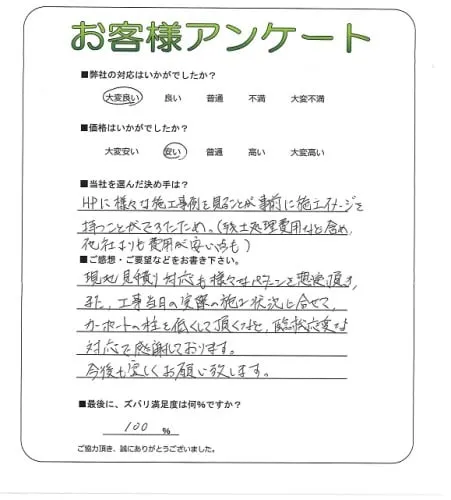 お客様アンケート
■弊社の対応はいかがでしたか?
大変良い 良い 普通 不満 大変不満
■価格はいかがでしたか?
大変安い 安い 普通 高い 大変高い
■当社を選んだ決め手は?
HPに様々な施工事例を見ることが事前に施工イメージを
持つことができたため。(残土処理費用などを含め、
他社よりも費用が安い点も)
■ご感想・ご要望などをお書き下さい。
現地見積り対応も様々なパターンを想定頂き、
また、工事当日の実際の施工状況に合せて、
カーポートの柱を低くして頂くなど、臨機応変な
対応で感謝しております。
今後も宜しくお願い致します。
■最後に、ズバリ満足度は何%ですか?
100 %
ご協力頂き、誠にありがとうございました。